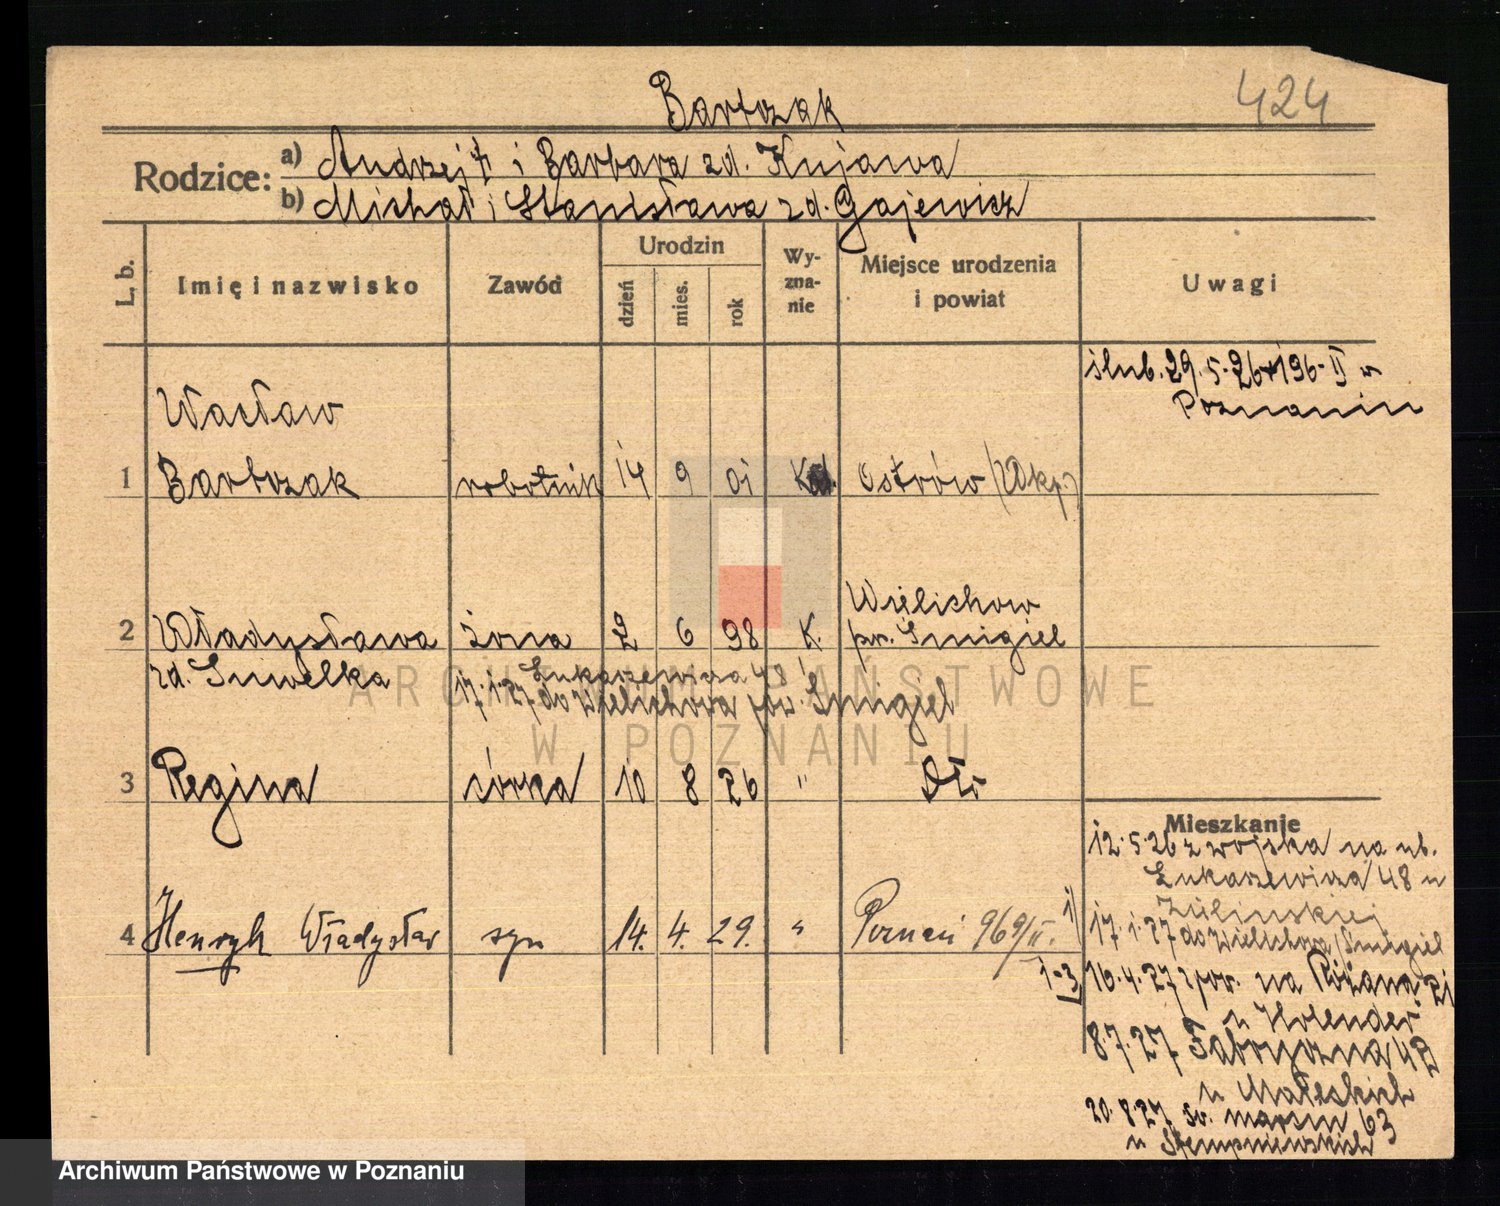 424
Bartczak
Rodzice: a) Andrzej † i Barbara zd. Kujawa
b) Michał i Stanisława zd. Gajewicz
L. b. Imię i nazwisko Zawód Urodzin dzień mies. rok Wy-zna-nie Miejsce urodzenia i powiat Uwagi
ślub. 29.5.26 196-II w
Poznaniu
Wacław
1 Bartczak robotnik 14 9 01 Kat. Ostrów (Wlkp.)
Wielichowo
2 Władysława żona 2 6 98 K. pow. Śmigiel
zd. Śniwelka
Łukaszewicza 48
17.1.27 do Wielichowa pow. Śmigiel
3 Regina córka 10 8 26 " Dto
Mieszkanie
12.5.26 z wojska na ul.
Łukaszewicza 48 u
Żulinskiej
4 Henryk Władysław syn 14. 4. 29. " Poznań 969/II.
1) 17.1.27 do Wielichowa/Śmigiel
1-3 16.4.27 spow. na Różana 21
u Holender
8.7.27 Fabryczna 42
u Małeckich
20.8.27 św. marcin 63
u Stempniewskich
ARCHIWUM PAŃSTWOWE
W POZNANIU
Archiwum Państwowe w Poznaniu